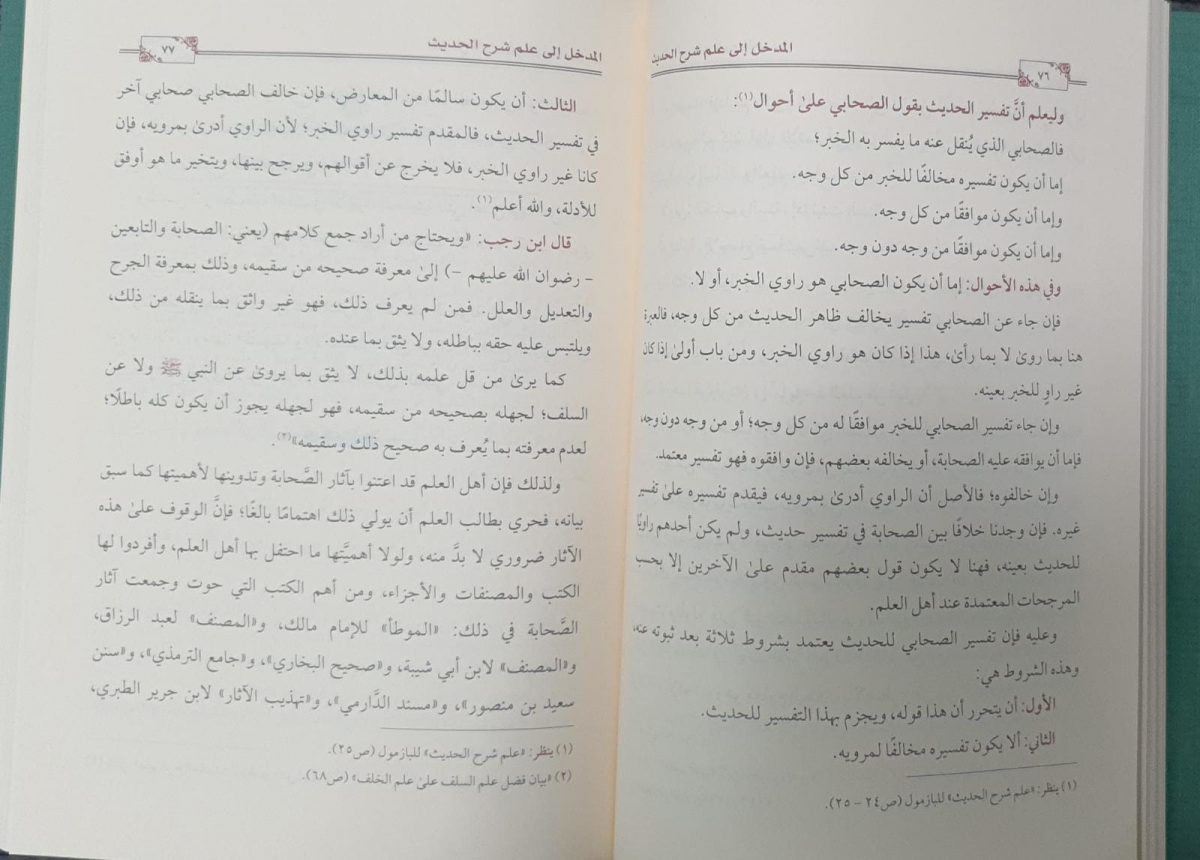 المدخل إلى علم شرح الحديث
٧٦
وليعلم أنَّ تفسير الحديث بقول الصحابي علىٰ أحوال(١):
فالصحابي الذي يُنقل عنه ما يفسر به الخبر؛
إما أن يكون تفسيره مخالفًا للخبر من كل وجه.
وإما أن يكون موافقًا من كل وجه.
وإما أن يكون موافقًا من وجه دون وجه.
وفي هذه الأحوال: إما أن يكون الصحابي هو راوي الخبر، أو لا.
فإن جاء عن الصحابي تفسير يخالف ظاهر الحديث من كل وجه، فالعبرة
هنا بما روىٰ لا بما رأىٰ، هذا إذا كان هو راوي الخبر، ومن باب أولىٰ إذا كان
غير راوٍ للخبر بعينه.
وإن جاء تفسير الصحابي للخبر موافقًا له من كل وجه؛ أو من وجه دون وجه،
فإما أن يوافقه عليه الصحابة، أو يخالفه بعضهم، فإن وافقوه فهو تفسير معتمد.
وإن خالفوه؛ فالأصل أن الراوي أدرىٰ بمرويه، فيقدم تفسيره علىٰ تفسير
غيره. فإن وجدنا خلافًا بين الصحابة في تفسير حديث، ولم يكن أحدهم راويًا
للحديث بعينه، فهنا لا يكون قول بعضهم مقدم علىٰ الآخرين إلا بحسب
المرجحات المعتمدة عند أهل العلم.
وعليه فإن تفسير الصحابي للحديث يعتمد بشروط ثلاثة بعد ثبوته عنه،
وهذه الشروط هي:
الأول: أن يتحرر أن هذا قوله، ويجزم بهذا التفسير للحديث.
الثاني: ألا يكون تفسيره مخالفًا لمرويه.
(١) ينظر: «علم شرح الحديث» للبازمول (ص٢٤ - ٢٥).
المدخل إلى علم شرح الحديث
٧٧
الثالث: أن يكون سالمًا من المعارض، فإن خالف الصحابي صحابي آخر
في تفسير الحديث، فالمقدم تفسير راوي الخبر؛ لأن الراوي أدرىٰ بمرويه، فإن
كانا غير راوي الخبر، فلا يخرج عن أقوالهم، ويرجح بينها، ويتخير ما هو أوفق
للأدلة، والله أعلم(١).
قال ابن رجب: «ويحتاج من أراد جمع كلامهم (يعني: الصحابة والتابعين
- رضوان الله عليهم -) إلىٰ معرفة صحيحه من سقيمه، وذلك بمعرفة الجرح
والتعديل والعلل. فمن لم يعرف ذلك، فهو غير واثق بما ينقله من ذلك،
ويلتبس عليه حقه بباطله، ولا يثق بما عنده.
كما يرىٰ من قل علمه بذلك، لا يثق بما يروىٰ عن النبي ﷺ ولا عن
السلف؛ لجهله بصحيحه من سقيمه، فهو لجهله يجوز أن يكون كله باطلًا؛
لعدم معرفته بما يُعرف به صحيح ذلك وسقيمه»(٢).
ولذلك فإن أهل العلم قد اعتنوا بآثار الصَّحابة وتدوينها لأهميتها كما سبق
بيانه، فحري بطالب العلم أن يولي ذلك اهتمامًا بالغًا؛ فإنَّ الوقوف علىٰ هذه
الآثار ضروري لا بدَّ منه، ولولا أهميَّتها ما احتفل بها أهل العلم، وأفردوا لها
الكتب والمصنفات والأجزاء، ومن أهم الكتب التي حوت وجمعت آثار
الصَّحابة في ذلك: «الموطأ» للإمام مالك، و«المصنف» لعبد الرزاق،
و«المصنف» لابن أبي شيبة، و«صحيح البخاري»، و«جامع الترمذي»، و«سنن
سعيد بن منصور»، و«مسند الدَّارمي»، و«تهذيب الآثار» لابن جرير الطبري،
(١) ينظر: «علم شرح الحديث» للبازمول (ص٢٥).
(٢) «بيان فضل علم السلف علىٰ علم الخلف» (ص٦٨).